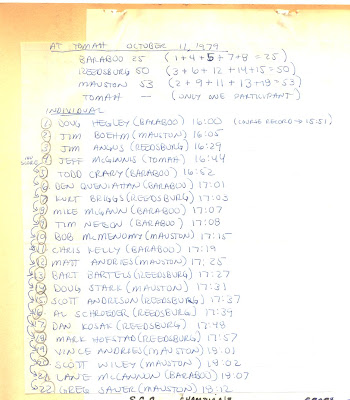 AT TOMAH OCTOBER 11, 1979
BARABOO 25 (1+4+5+7+8=25)
REEDSBURG 50 (3+6+12+14+15=50)
MAUSTON 53 (2+9+11+13+18=53)
TOMAH — (ONLY ONE PARTICIPANT)
INDIVIDUAL
1 DOUG HEGLEY (BARABOO) 16:00 (COURSE RECORD → 15:51)
2 TIM BOEHM (MAUSTON) 16:05
3 JIM ANGUS (REEDSBURG) 16:29
4 JEFF MCGINNIS (TOMAH) 16:44
5 TODD CRARY (BARABOO) 16:52
6 BEN (BARABOO) 17:01
7 KURT BRIGGS (REEDSBURG) 17:03
8 MIKE MCGANN (BARABOO) 17:07
9 TIM NELSON (BARABOO) 17:08
10 BOB MCMENOMY (MAUSTON) 17:15
11 CHRIS KELLY (BARABOO) 17:19
12 MATT ANDRIES (MAUSTON) 17:25
13 BART BARTELS (REEDSBURG) 17:27
14 DOUG STARK (MAUSTON) 17:31
15 SCOTT ANDERSON (REEDSBURG) 17:37
16 AL SCHROEDER (REEDSBURG) 17:39
17 DAN KOSAK (REEDSBURG) 17:48
18 MARK HOFSTAD (REEDSBURG) 17:57
19 VINCE ANDRIES (MAUSTON) 18:01
20 SCOTT WILEY (MAUSTON) 18:02
21 LANE MCCANNON (BARABOO) 18:07
22 GREG SAUER (MAUSTON) 18:12